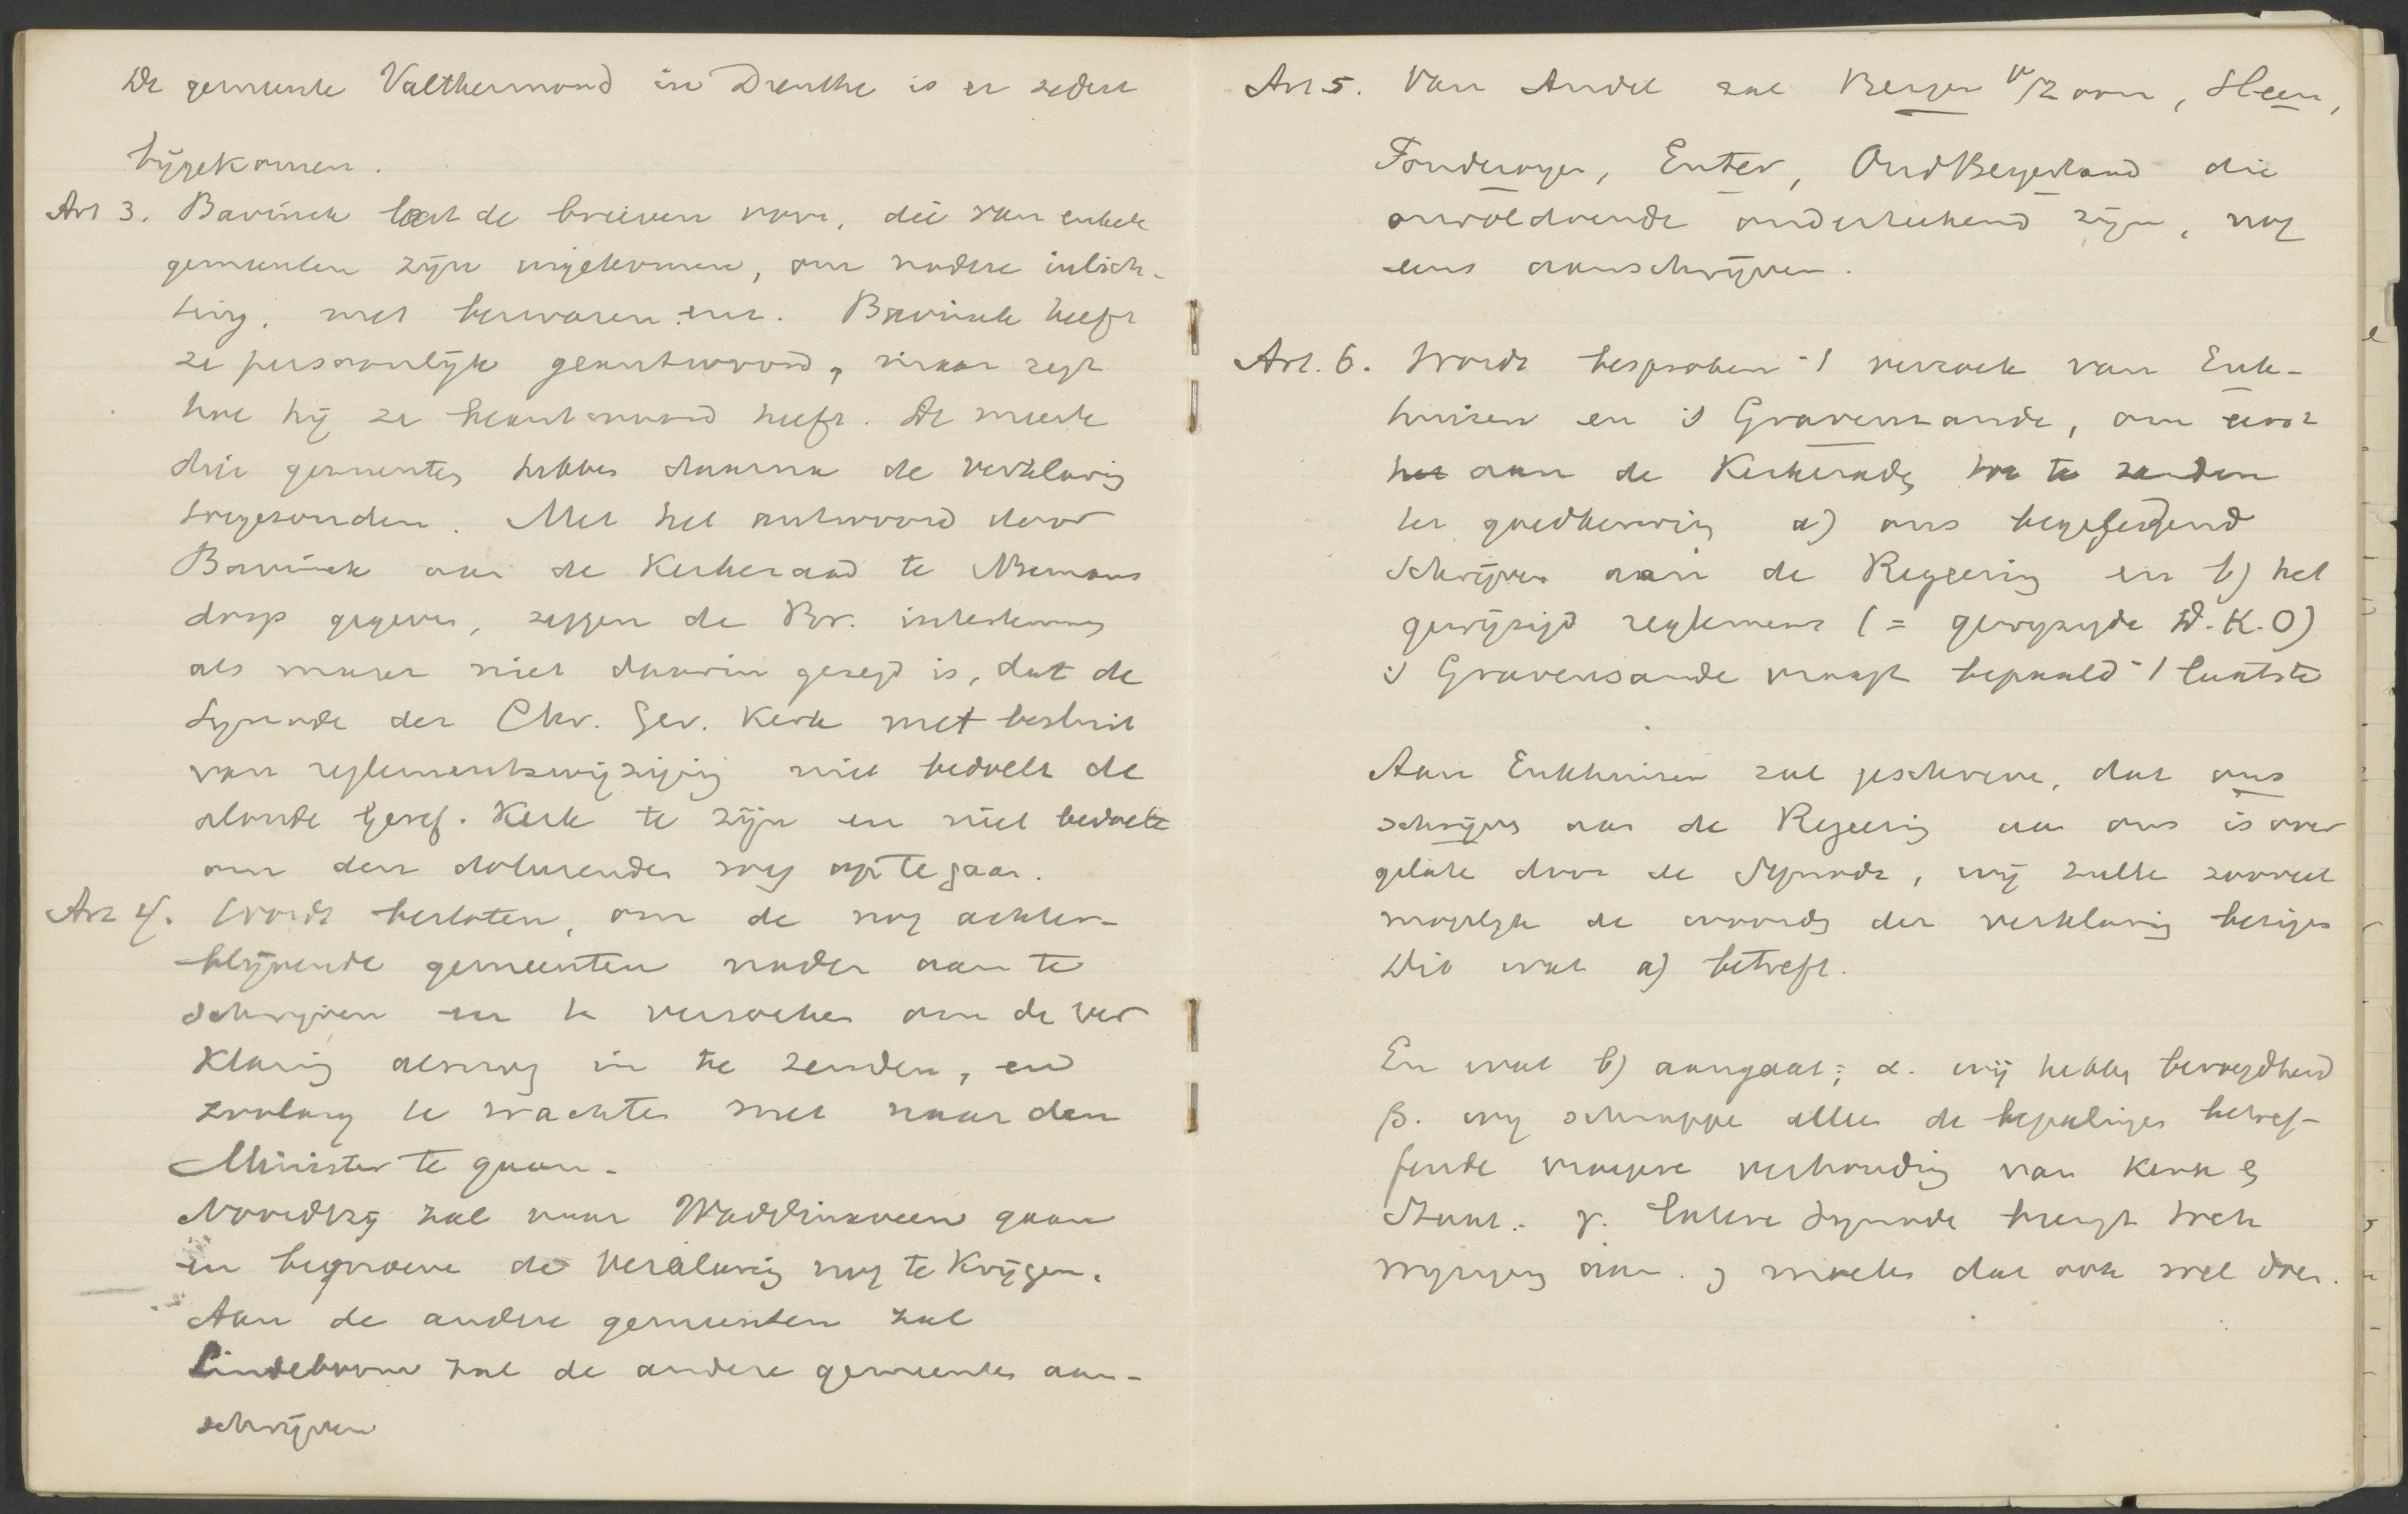 De gemeente Valthermond in Drenthe is er sedert
bijgekomen.
Art 3. Bavinck leest de brieven voor, die van enkele
gemeenten zijn ingekomen, om nadere inlich-
ting, met bezwaren enz. Bavinck heeft
ze persoonlijk geantwoord, maar zegt
hoe hij ze beantwoord heeft. De meeste
drie gemeenten hebben daarna de verklaring
toegezonden. Met het antwoord door
Bavinck aan de Kerkeraad te Numans
dorp gegeven, zeggen de Br. instemming
als maar niet daarin gezegd is, dat de
Synode der Chr. Ger. Kerk met besluit
van reglementswijziging niet bedoelt de
aloude Geref. Kerk te zijn en niet bedoelt
om den doleerenden weg op te gaan.
Art 4. Wordt besloten, om de nog achter-
blijvende gemeenten nader aan te
schrijven en te verzoeken om de ver
klaring alsnog in te zenden, en
zoolang te wachten met naar den
Minister te gaan.
Noordtzij zal naar Waddinxveen gaan
en beproeve de Verklaring nog te Krijgen.
Aan de andere gemeenten zal
Lindeboom zal de andere gemeenten aan-
schrijven
Art 5. Van Andel zal Bergen o/Zoom, Heen,
Enter, OudBeyerland die
onvoldoende onderteekend zijn, nog
eens aanschrijven.
Art. 6. Wordt besproken 't verzoek van Enk-
huizen en 's Gravensande, om eerst
het aan de Kerkeraden toe te zenden
ter goedkeuring a) ons begeleidend
Schrijven aan de Regeering en b) het
gewijzigd reglement (= gewijzigde D.K.O)
's Gravensande vraagt bepaald 't laatste
Aan Enkhuizen zal geschreven, dat ons
schrijven aan de Regeering aan ons is over
gelaten door de Synode, wij zullen zooveel
mogelijk de woorden der verklaring bezigen
Dit wat a) betreft.
En wat b) aangaat; α. wij hebben bevoegdheid
β. wij schrappen alleen de bepalingen betref-
fende vroegere verhouding van Kerk &
Staat. γ. Iedere Synode brengt toch
wijziging aan. & moeten dat ook wel doen.